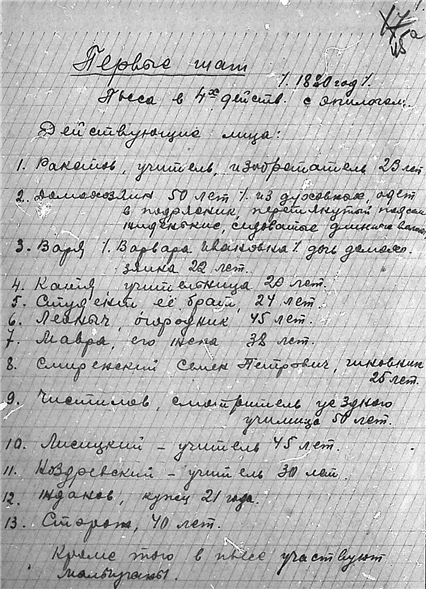 Первые шаги
/. 1880 год /.
Пьеса в 4х действ. с эпилогом.
Действующие лица:
1. Ракетов, учитель, изобретатель 23 лет
2. Домохозяин 50 лет /. из духовных, одет
в подрясник, перетянутый поясом
жиденькие, седоватые длинные
3. Варя /. Варвара Ивановна /. дочь домохо-
зяина 22 лет.
4. Катя, учительница 20 лет.
5. Студент её брат, 24 лет.
6. Леоныч, огородник 45 лет.
7. Мавра, его жена 38 лет.
8. Смиренский Семен Петрович, чиновник
25 лет.
9. Чистилов, смотритель уездного
училища 50 лет.
10. Лисицкий – учитель 45 лет.
11. Ноздревский – учитель 30 лет.
12. Жданов, купец 21 года.
13. Сторож, 40 лет.
Кроме того в пьесе участвуют
мальчуганы.